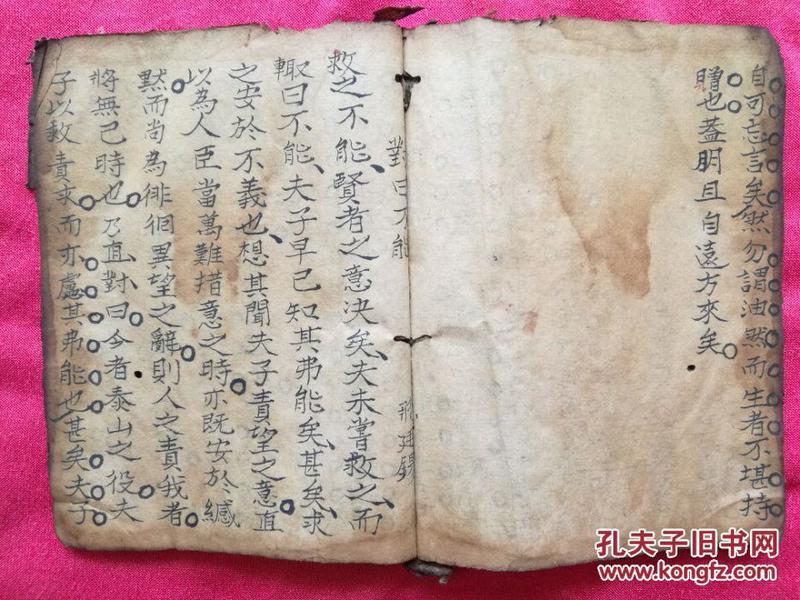 自可忘言矣然勿謂油然而生者不堪持
贈也蓋朋且自遠方來矣
對曰不能
邢廷
救之不能賢者之意決矣夫未嘗救之而
輙曰不能夫子早已知其弗能矣甚矣求
之安於不義也想其聞夫子責望之意直
以為人臣當萬難措意之時亦既安於緘
默而尚為徘徊異望之辭則人之責我者
將無已時也乃直對曰今者泰山之役夫
子以救責求而亦慮其弗能也甚矣夫子
孔夫子旧书网
www.kongfz.com